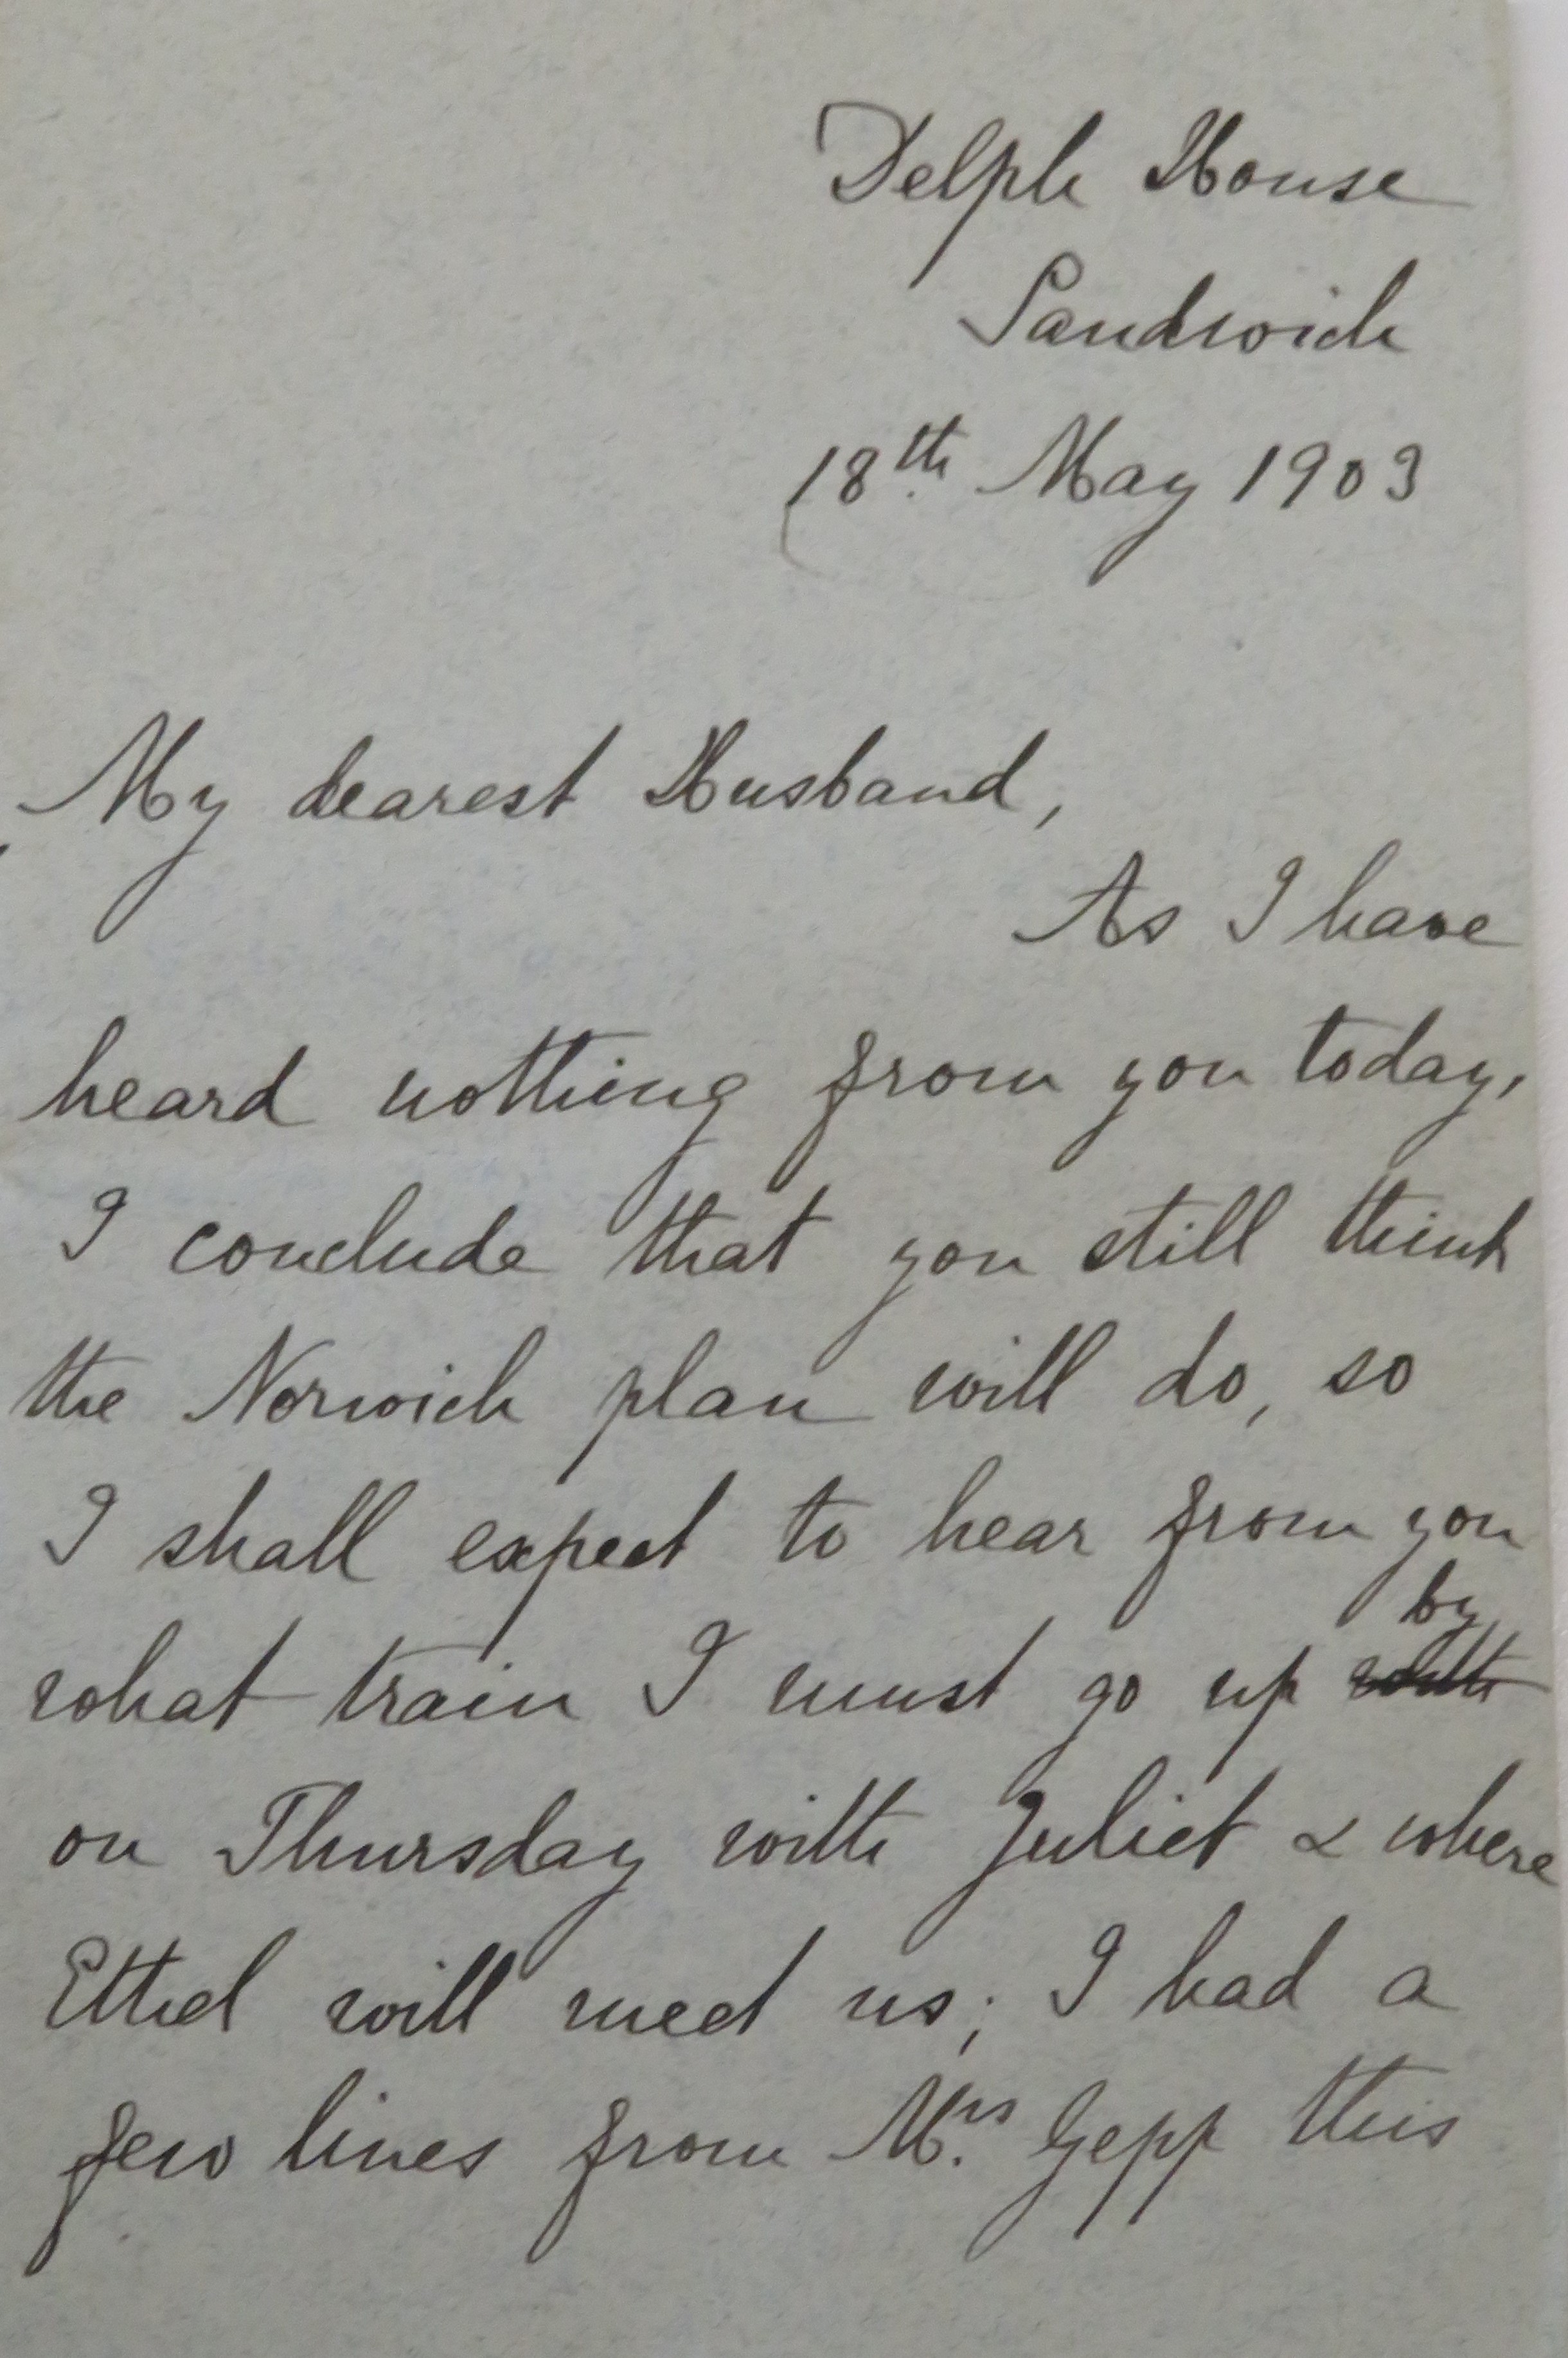 Delph House
Sandwich
18th May 1903
My dearest Husband,
As I have
heard nothing from you today,
I conclude that you still think
the Norwich plan will do, so
I shall expect to hear from you
by
what train I must go up with
on Thursday with Juliet & where
Ethel will meet us; I had a
few lines from Mrs Gepp this